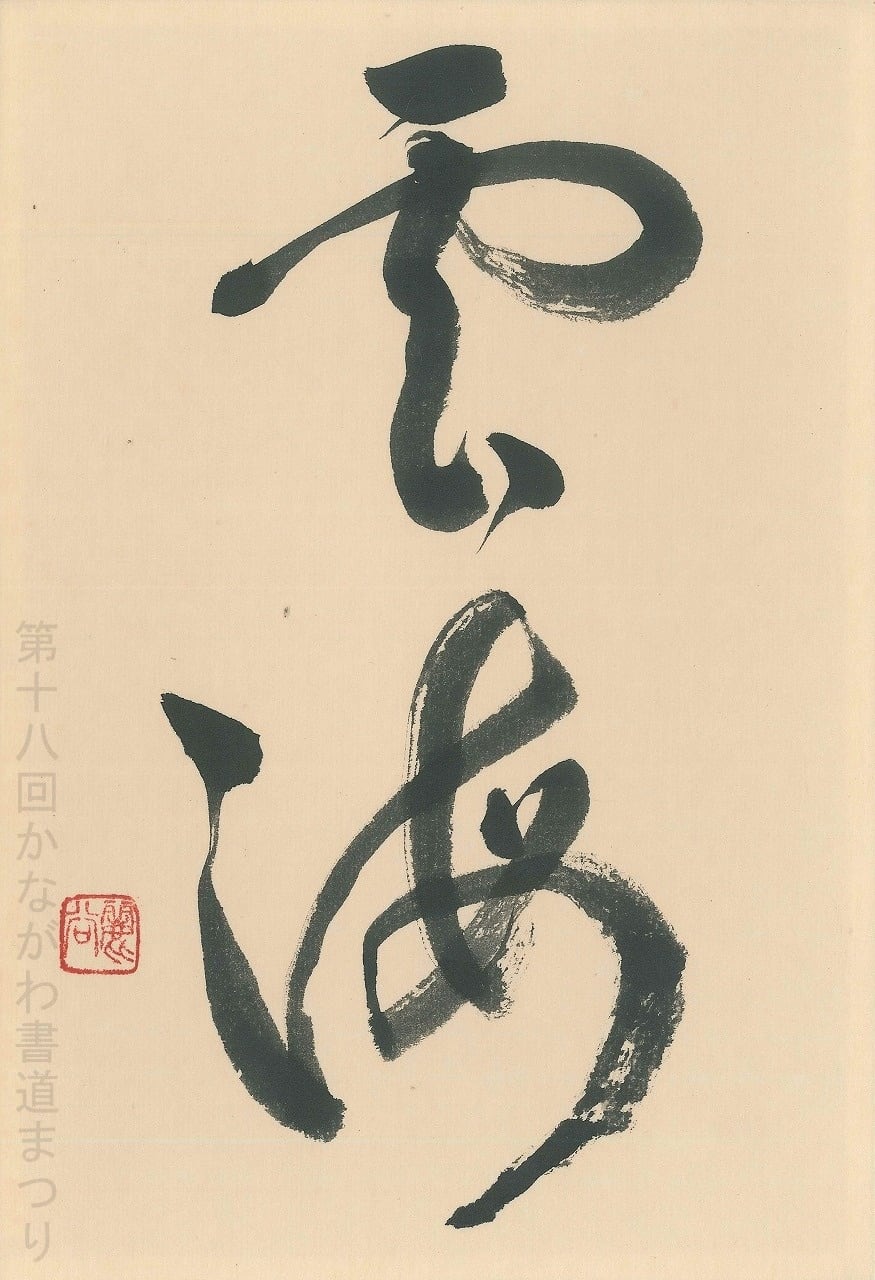 雲海
第十八回かながわ書道まつり